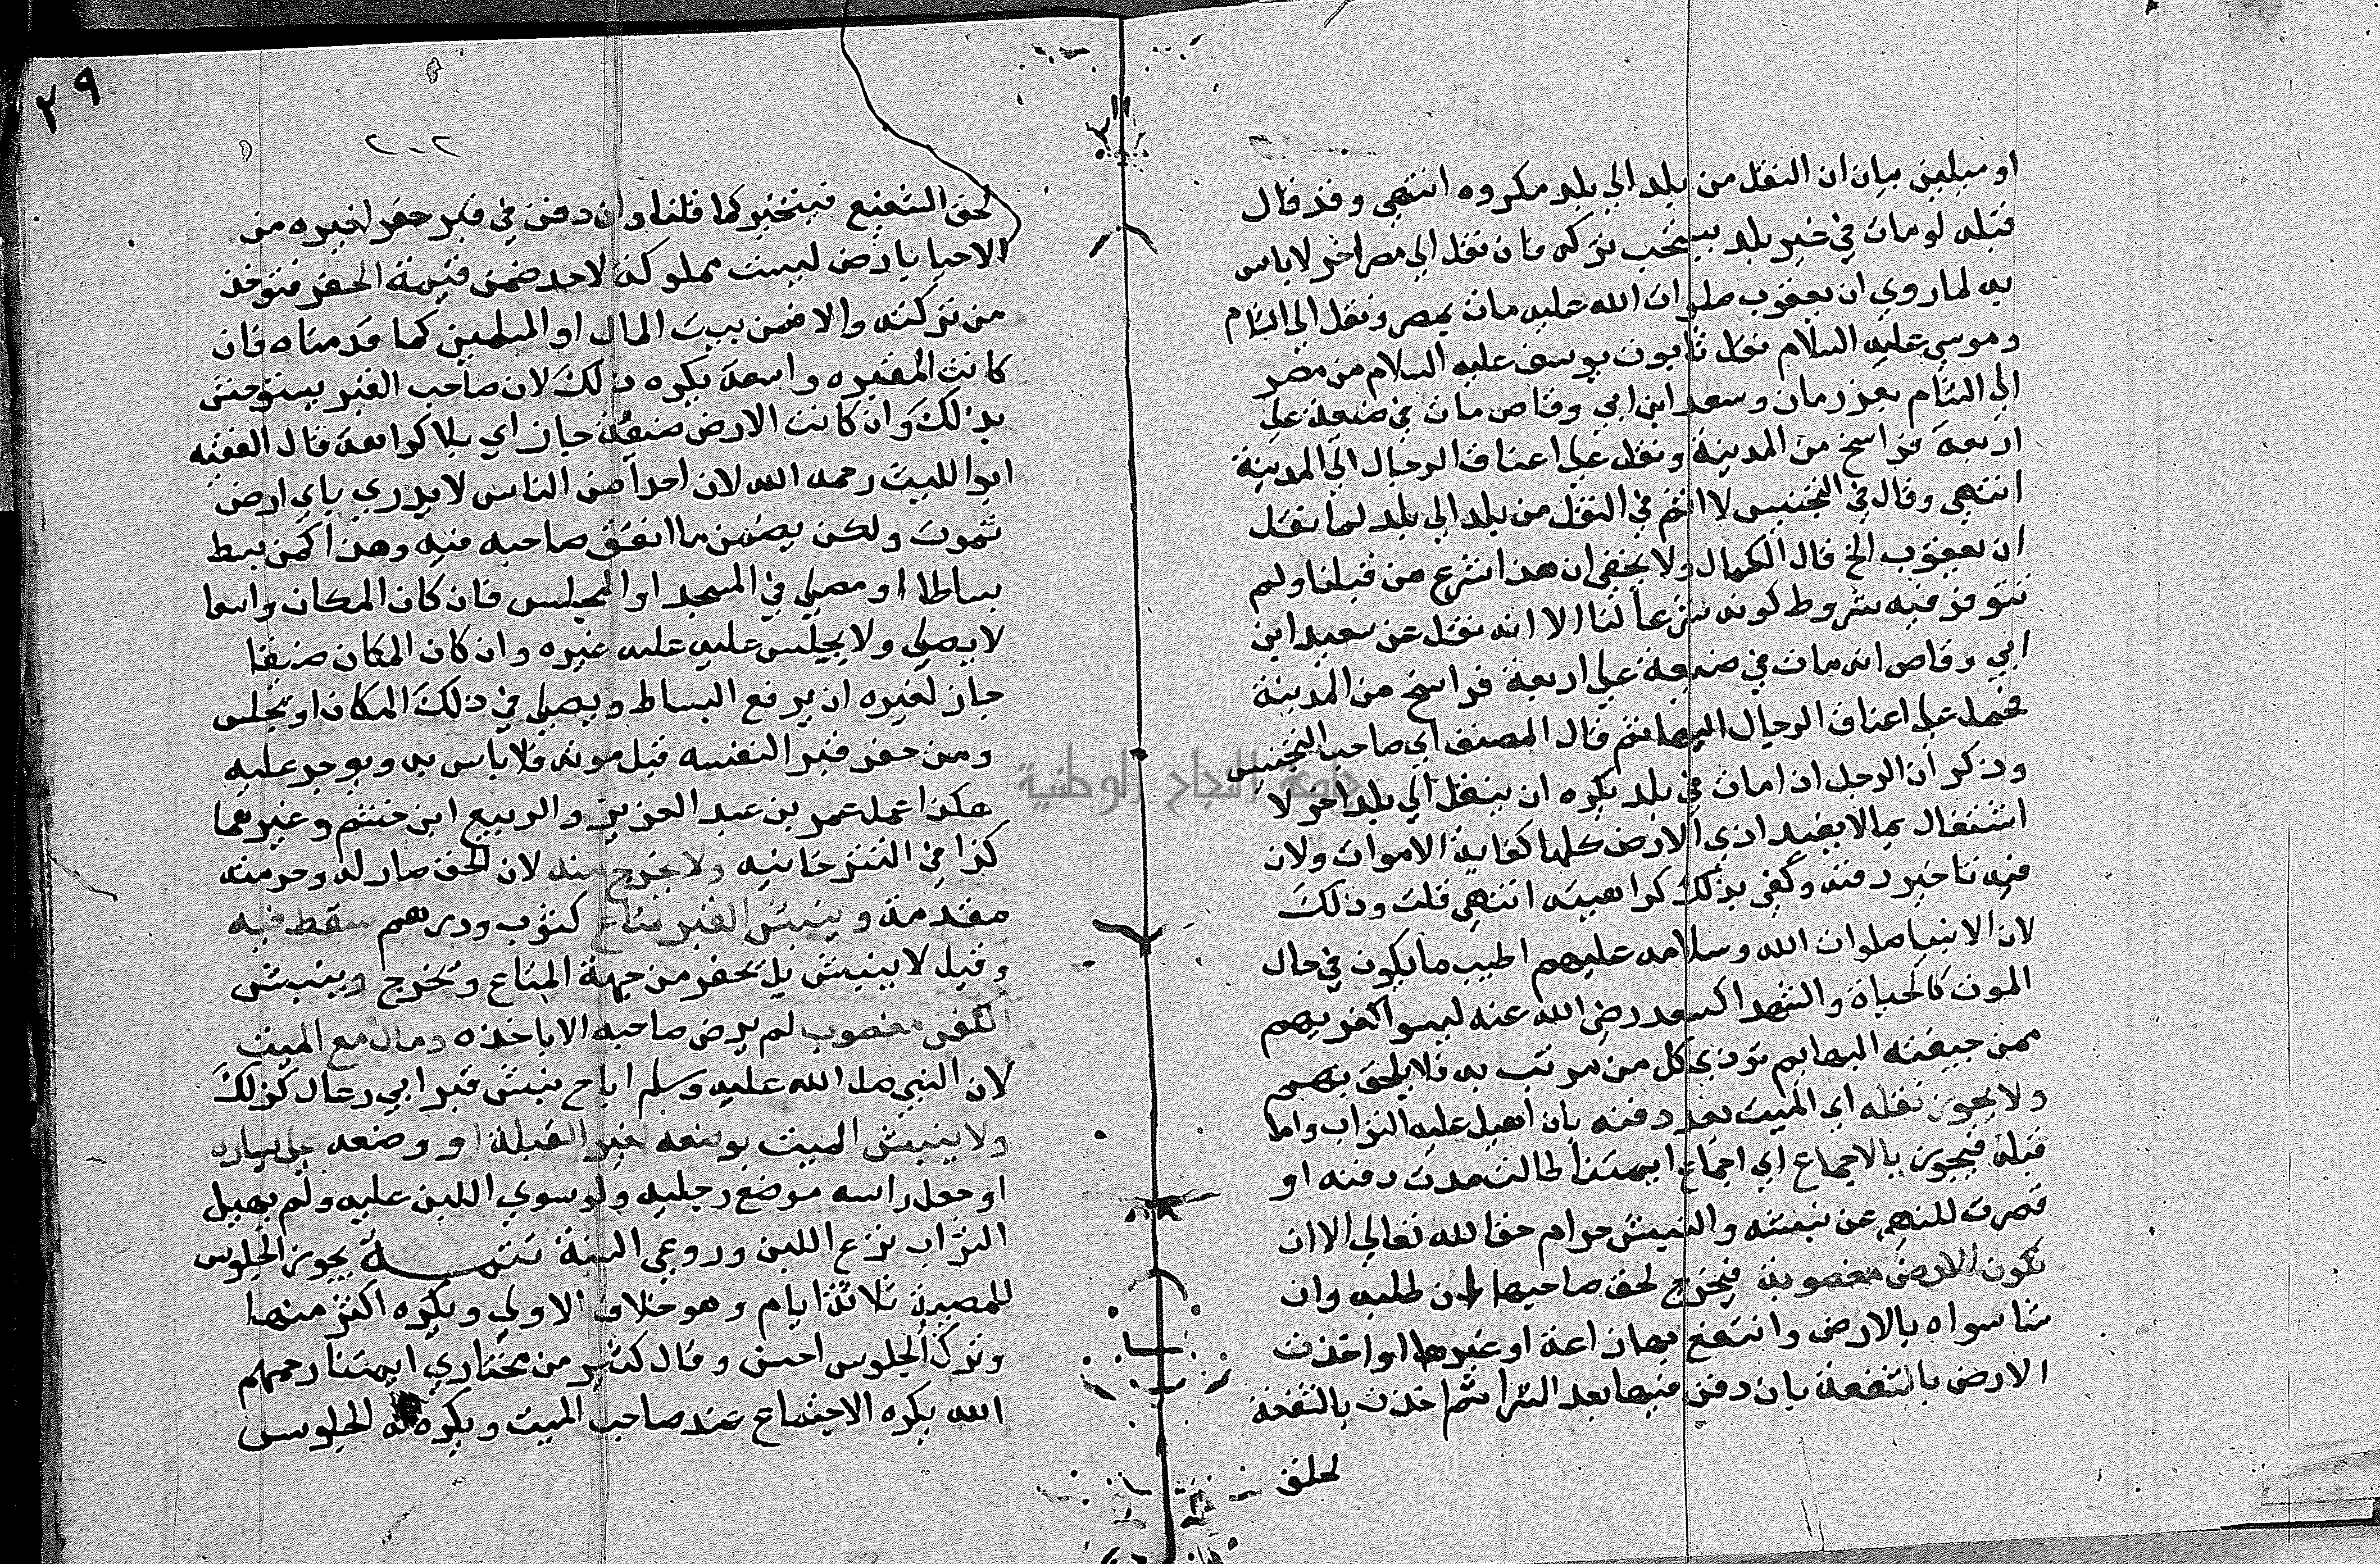 او ميلين بيان ان النقل من بلد الي بلد مكروه انتهي وقد قال
قبله لو مات في غير بلد يستحب تركه فان نقل الي مصر اخر لا باس
به لما روي ان يعقوب صلوات الله عليه مات بمصر ونقل الي الشام
وموسي عليه السلام نقل تابوت يوسف عليه السلام من مصر
الي الشام بعد زمان وسعد ابن ابي وقاص مات في ضيعة علي
اربعة فراسخ من المدينة ونقل علي اعناق الرجال الي المدينة
انتهي وقال في التجنيس لا اثم في النقل من بلد الي بلد لما نقل
ان يعقوب الخ قال الكمال ولا يخفي ان هذا شرع من قبلنا ولم
تتوفر فيه شروط كونه شرعا لنا الا انه نقل عن سعيد ابن
ابي وقاص انه مات في ضيعة علي اربعة فراسخ من المدينة
فحمل علي اعناق الرجال اليها ثم قال المصنف اي صاحب التجنيس
وذكر ان الرجل اذا مات في بلد يكره ان ينقل الي بلد اخر لا
اشتغال بما لا يفيد اذ في الارض كلها كفاية الاموات ولان
فيه تاخير دفنه وكفي بذلك كراهية انتهي قلت وذلك
لان الانبيا صلوات الله وسلامه عليهم اطيب ما يكون في حال
الموت كالحياة والشهدا كسعد رضي الله عنه ليسوا كغيرهم
ممن جيفته البهايم توذي كل من مرت به فلا يلحق بهم
ولا يجوز نقله اي الميت بعد دفنه بان اهيل عليه التراب واما
قبله فيجوز بالاجماع اي اجماع ايمتنا طالت مدت دفنه او
قصرت للنهي عن نبشه والنبش حرام حقا لله تعالي الا ان
تكون الارض مغصوبة فيخرج لحق صاحبها ان طلبه وان
شا سواه بالارض وانتفع بها زراعة او غيرها او اخذت
الارض بالشفعة بان دفن فيها بعد الشرا ثم اخذت بالشفعة
لحق
٢٩
٢٠٢
لحق الشفيع فيتخير كما قلنا وان دفن في قبر حفر لغيره من
الاحيا بارض ليست مملوكة لاحد ضمن قيمة الحفر فتوخذ
من تركته والا فمن بيت المال او المسلمين كما قدمناه فان
كانت المقبره واسعة يكره ذلك لان صاحب القبر يستوحش
بذلك وان كانت الارض ضيقة جاز اي بلا كراهة قال الفقيه
ابوا الليث رحمه الله لان احدا من الناس لا يدري باي ارض
تموت ولكن يضمن ما انفق صاحبه فيه وهذا كمن بسط
بساطا او مصلي في المسجد او المجلس فان كان المكان واسعا
لا يصلي ولا يجلس عليه عليه غيره وان كان المكان ضيقا
جاز لغيره ان يرفع البساط ويصلي في ذلك المكان او يجلس
ومن حفر قبرا لنفسه قبل موته فلا باس به ويوجر عليه
هكذا عمله عمر بن عبد العزيز والربيع ابن خثيم وغيرهما
كذا في التترخانيه ولا يخرج منه لان الحق صار له وحرمته
مقدمة وينبش القبر لمتاع كثوب ودرهم سقط فيه
وقيل لا ينبش بل يحفر من جهة المتاع ويخرج وينبش
لكفن مغصوب لم يرض صاحبه الا باخذه ومال مع الميت
لان النبي صلي الله عليه وسلم اباح نبش قبر ابي رغال كذلك
ولا ينبش الميت بوضعه لغير القبلة او وضعه علي يساره
او جعل راسه موضع رجليه ولو سوي اللبن عليه ولم يهيل
التراب نزع اللبن وروعي السنة تتمـــة يجوز الجلوس
للمصيبة ثلاثة ايام وهو خلاف الاولي ويكره اكثر منها
وترك الجلوس احسن وقال كثير من متاخري ايمتنا رحمهم
الله يكره الاجتماع عند صاحب الميت ويكره له الجلوس
جامعة النجاح الوطنية